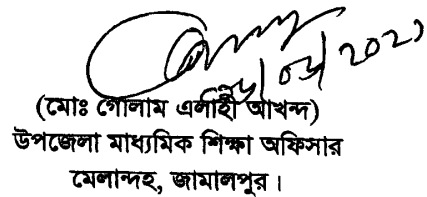 (মোঃ গোলাম এলাহী আখন্দ)
উপজেলা মাধ্যমিক শিক্ষা অফিসার
মেলান্দহ, জামালপুর।